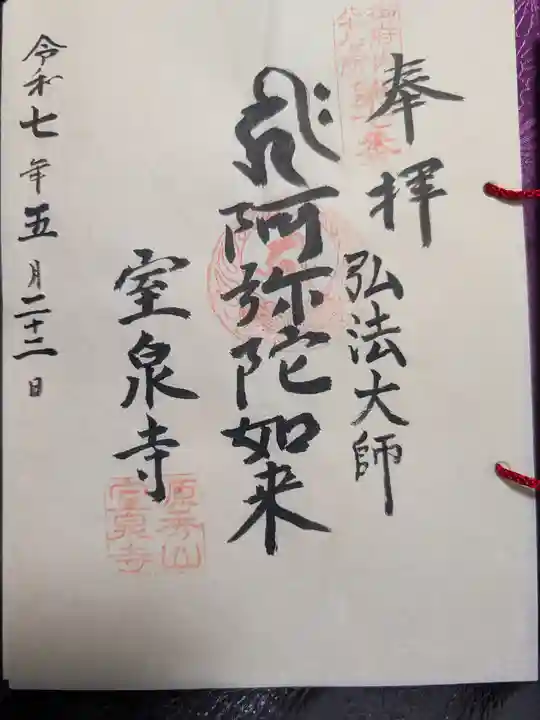 奉拝
弘法大師
阿弥陀如来
室泉寺
源秀山
室泉寺
令和七年五月二十二日